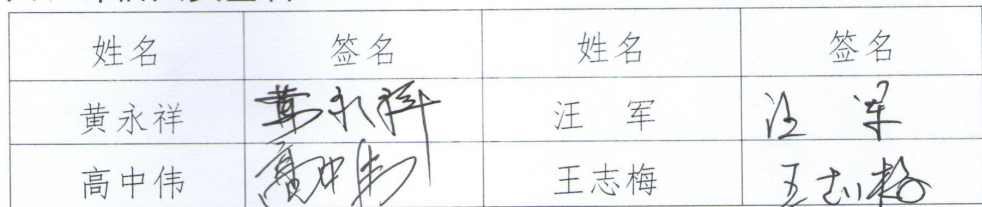 姓名 签名 姓名 签名
黄永祥 黄永祥 汪 军 汪 军
高中伟 高中伟 王志梅 王志梅